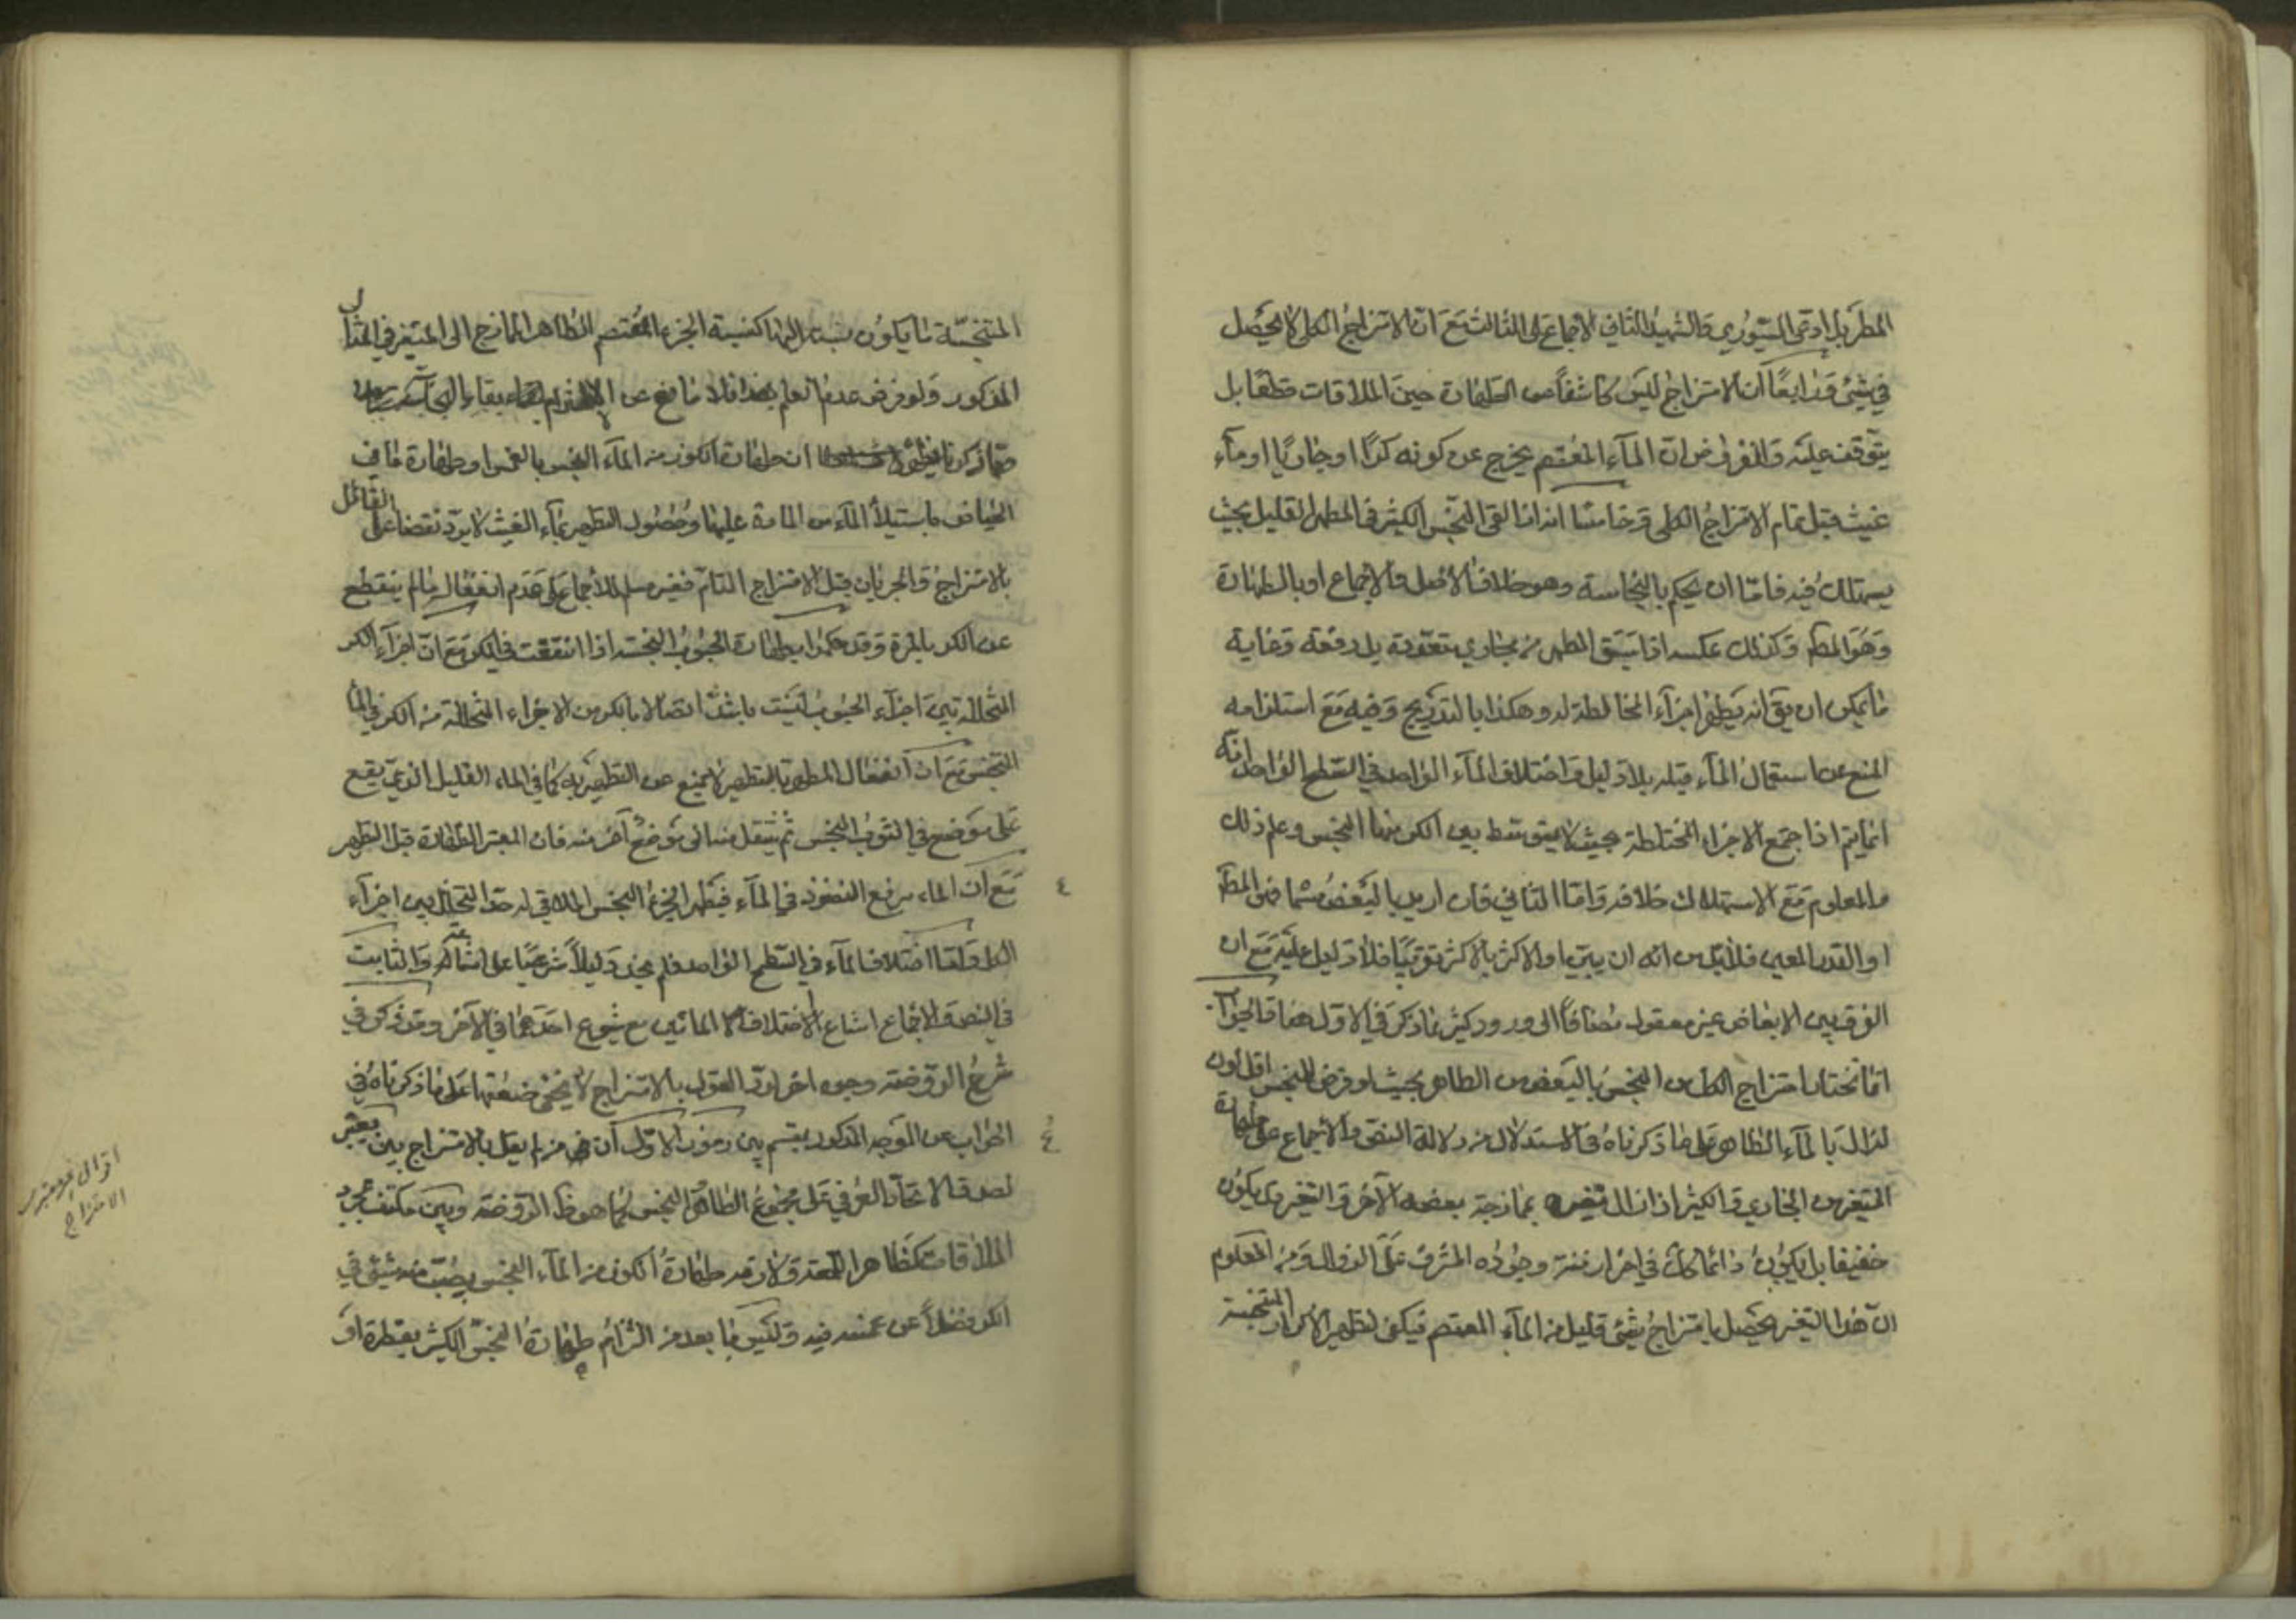 المطر بل ادعى السيوري والشهيد الثاني الاجماع على الثالث مع ان الامتزاج الكلي لا يحصل
في شيء ورابعا ان الامتزاج ليس كاشفا عن الطهارة حين الملاقات قطعا بل
يتوقف عليه والمفروض ان الماء المعتصم يخرج عن كونه كرا او جاريا او ماء
غيث قبل تمام الامتزاج الكلي وخامسا انه اذا القي النجس الكثير في المطهر القليل بحيث
يستهلك فيه فاما ان يحكم بالنجاسة وهو خلاف الاصل والاجماع او بالطهارة
وهو المط وكذلك عكسه اذا سبق المطهر من مجاري متعددة بل دفعة وغاية
ما يمكن ان يق انه يطهر اجزاء المخالطة له وهكذا بالتدريج وفيه مع استلزامه
المنع عن استعمال الماء قبله بلا دليل واختلاف الماء الواحد في السطح الواحد انه
انما يتم اذا اجتمع الاجزاء المختلطة بحيث لا يتوسط بين الكر منها النجس وعلم ذلك
والمعلوم مع الاستهلاك خلافه واما الثاني فان اريد بالبعض مسماه فهو المط
او القدر المعين فلابد من انه ان يبين او الاكثر بالاكثر تقريبا فلا دليل عليه مع ان
الفرق بين الابعاض غير معقول مضافا الى ورود كثير مما ذكر في الاول هنا والجواب
انا نختار امتزاج الكل من النجس بالبعض من الطاهر بحيث لو فرض للنجس اقل لون
لزال بالماء الطاهر على ما ذكرناه في الاستدلال من دلالة النص والاجماع على طهارة
المتغير من الجاري والكثير اذا زال التغير بممازجة بعضه الآخر والتغير قد يكون
خفيفا بل يكون دائما كك في اخر ازمنة وجوده المشرف على الزوال ومن المعلوم
ان هذا التغير يحصل بامتزاج شيء قليل من الماء المعتصم فيكفي لتطهير الاكرار المتنجسة
المتنجسة ما يكون نسبته اليها كنسبة الجزء المعتصم الطاهر الممازج الى المتغير في المثال
المذكور ولو فرض عدم العلم بهذا فلا مانع عن بقاء النجاسة
مما ذكرنا ان طهارة الكوز من الماء النجس بالغمس او طهارة ما في
الحياض باستيلاء الماء من المادة عليها وحصول التطهير بماء الغيث لا يرد نقضا على القائل
بالامتزاج والجريان قبل الامتزاج التام فغير مسلم للاجماع على عدم انفعاله ما لم ينقطع
عن الكر بالمرة وقد حكموا بطهارة الحبوب النجسة اذا انتقعت في الكر مع ان اجزاء الكر
المتخللة بين اجزاء الحبوب ليست باشد اتصالا بالكر من الاجزاء المتخللة من الكر في الماء
النجس مع ان انفعال المطهر بالتطهير لا يمنع عن التطهير به كما في الماء القليل الذي يقع
على موضع في الثوب النجس ثم ينتقل منه الى موضع آخر منه فان المعتبر الطهارة قبل التطهير
مع ان الماء سريع النفوذ في الماء فيطهر الجزء النجس الملاقي له حد التخلل بين اجزاء
الكل واما اختلاف الماء في السطح الواحد فلم نجد دليلا شرعيا على امتناعه والثابت
في النص والاجماع امتناع اختلاف المائين مع شيوع احدهما في الآخر وقد ذكر في
شرح الروضة وجوه اخر لرد القول بالامتزاج لا يخفى ضعفها على ما ذكرناه في
الجواب عن الوجه المذكور بقسميه بين رموز الاول ان من لم يقل بالامتزاج بين معتبر
لصدق الاتحاد العرفي على مجموع الطاهر والنجس كما هو ظ الروضة وبين مكتف بمجرد
الملاقات كظاهر المعتبر ولازمه طهارة الكوز من الماء النجس يصب منه شيء في
الكر فضلا عن غمسه فيه وليس ما بعد من التزام طهارة النجس الكثير بقطرة او
اقوال غير معتبرين
الامتزاج